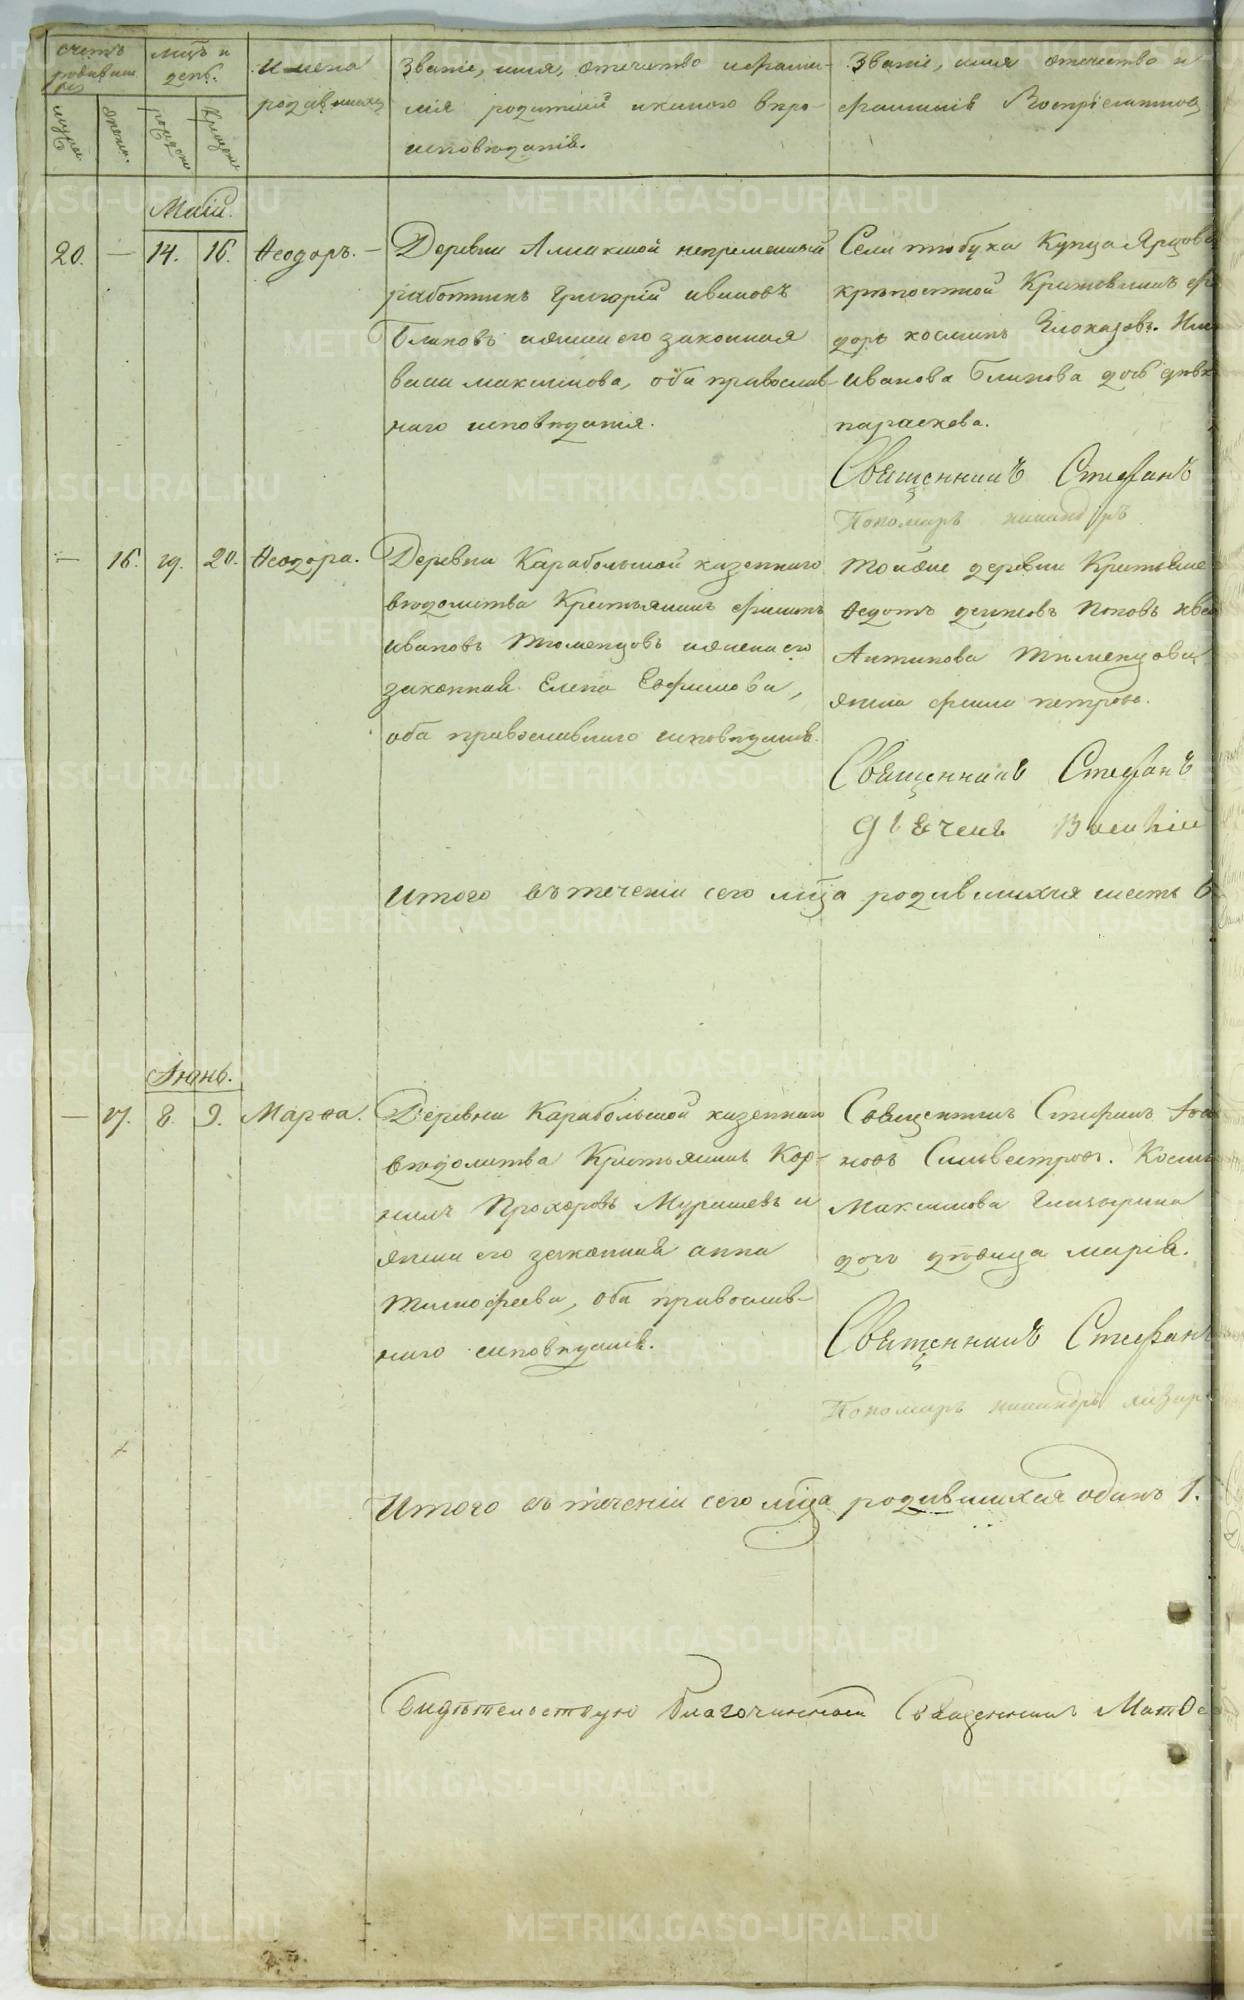 счетъ родивших
мцъ и день.
Имена родившихся
Званіе, имя, отечество и фами-
лія родителей и какого вѣро-
исповѣданія.
Званіе, имя отечество и
фамилія Воспріемниковъ
мужес.
женс.
рожден
крещен
Маій.
20. — 14. 16. Ѳеодоръ. —
Деревни Алмакшой непременный
работникъ Григорій Ивановъ
Блиновъ и жена его законная
Максимова, оба православ-
наго исповѣданія.
Села Купца
крѣпостной Крестьянинъ Фе
доръ Косминъ
Иванова Блинова дочь дѣвк
параскева.
Священникъ Стефанъ
Пономарь никандръ
— 16. 19. 20. Ѳеодора.
Деревни Карабольской казеннаго
вѣдомства Крестьянинъ филипъ
ивановъ Тюменцовъ и жена его
законная Елена Ефимова,
оба православнаго исповѣданія.
Тойже деревни Крестьяне
Ѳедотъ Поповъ
Антипова Тюменцова
жена петрова.
Священникъ Стефанъ
Дьячекъ Василій
Итого въ теченіи сего мца родившихся шесть 6
Іюнь.
— 17. 8. 9. Марѳа.
Деревни Карабольской казеннаго
вѣдомства Крестьянинъ Кор-
нилъ Прохоровъ Мурашевъ и
жена его законная анна
тимофеева, оба православ-
наго исповѣданія.
Священникъ Стефанъ Іоа
новъ Сильвестровъ. Косьмы
Максимова
дочь дѣвица марія.
Священникъ Стефанъ
Пономарь никандръ лазар
Итого въ теченіи сего мца родившихся одинъ 1.
Свидѣтельствую Благочинный Священникъ Матѳе